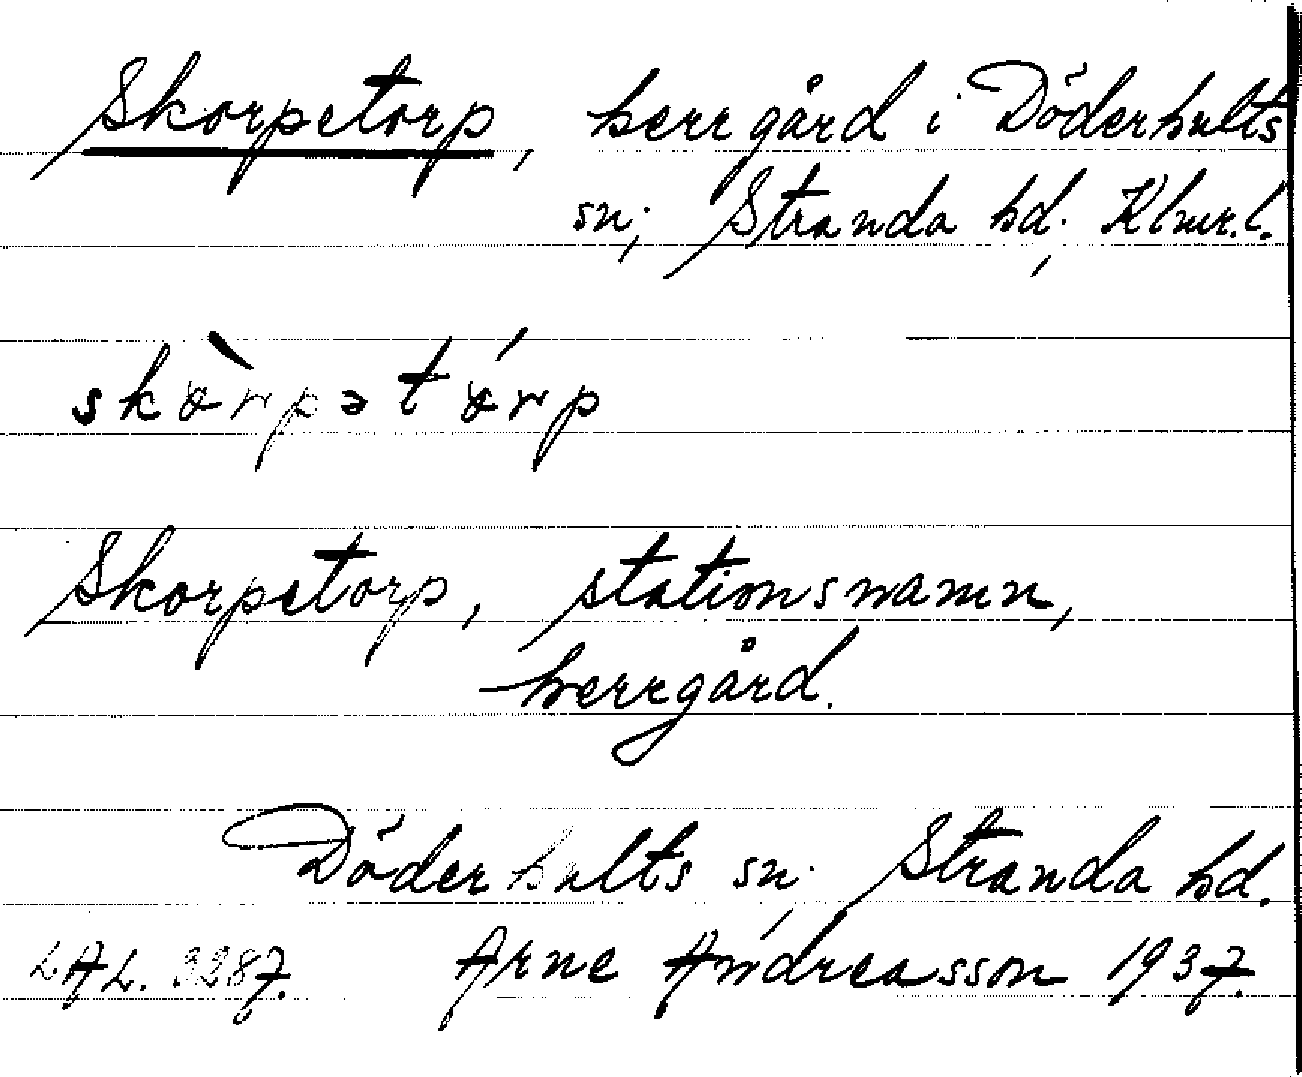 Skorpetorp, herrgård i Döderhults
sn., Stranda hd., Klmr.l.
skòrpətórp
Skorpetorp, stationsnamn,
herrgård.
Döderhults sn., Stranda hd.
LAL. 3287. Arne Andreasson 1937.